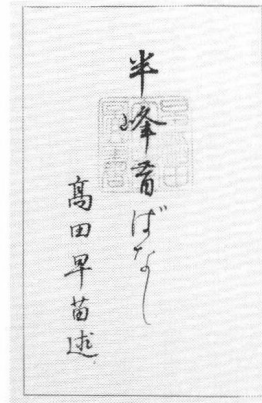 半峰昔ばなし
髙田早苗述